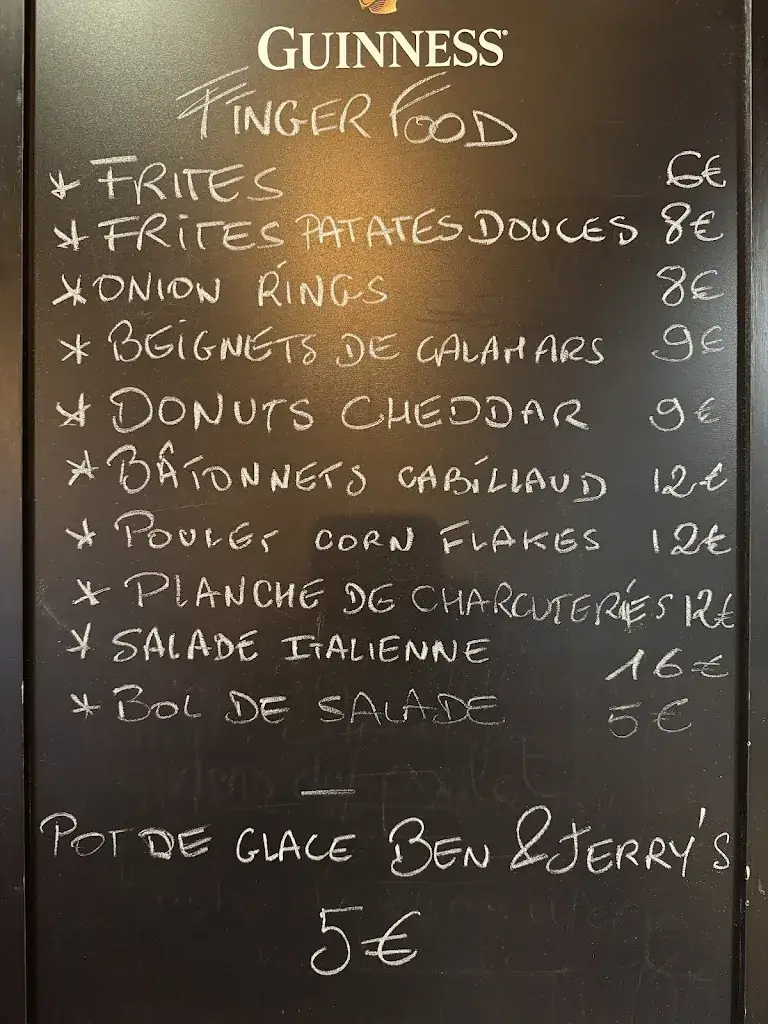 GUINNESS
FINGER FOOD
* FRITES 6€
* FRITES PATATES DOUCES 8€
* ONION RINGS 8€
* BEIGNETS DE CALAMARS 9€
* DONUTS CHEDDAR 9€
* BÂTONNETS CABILLAUD 12€
* POULET CORN FLAKES 12€
* PLANCHE DE CHARCUTERIES 12€
* SALADE ITALIENNE 16€
* BOL DE SALADE 5€
—
POT DE GLACE BEN & JERRY'S
5€